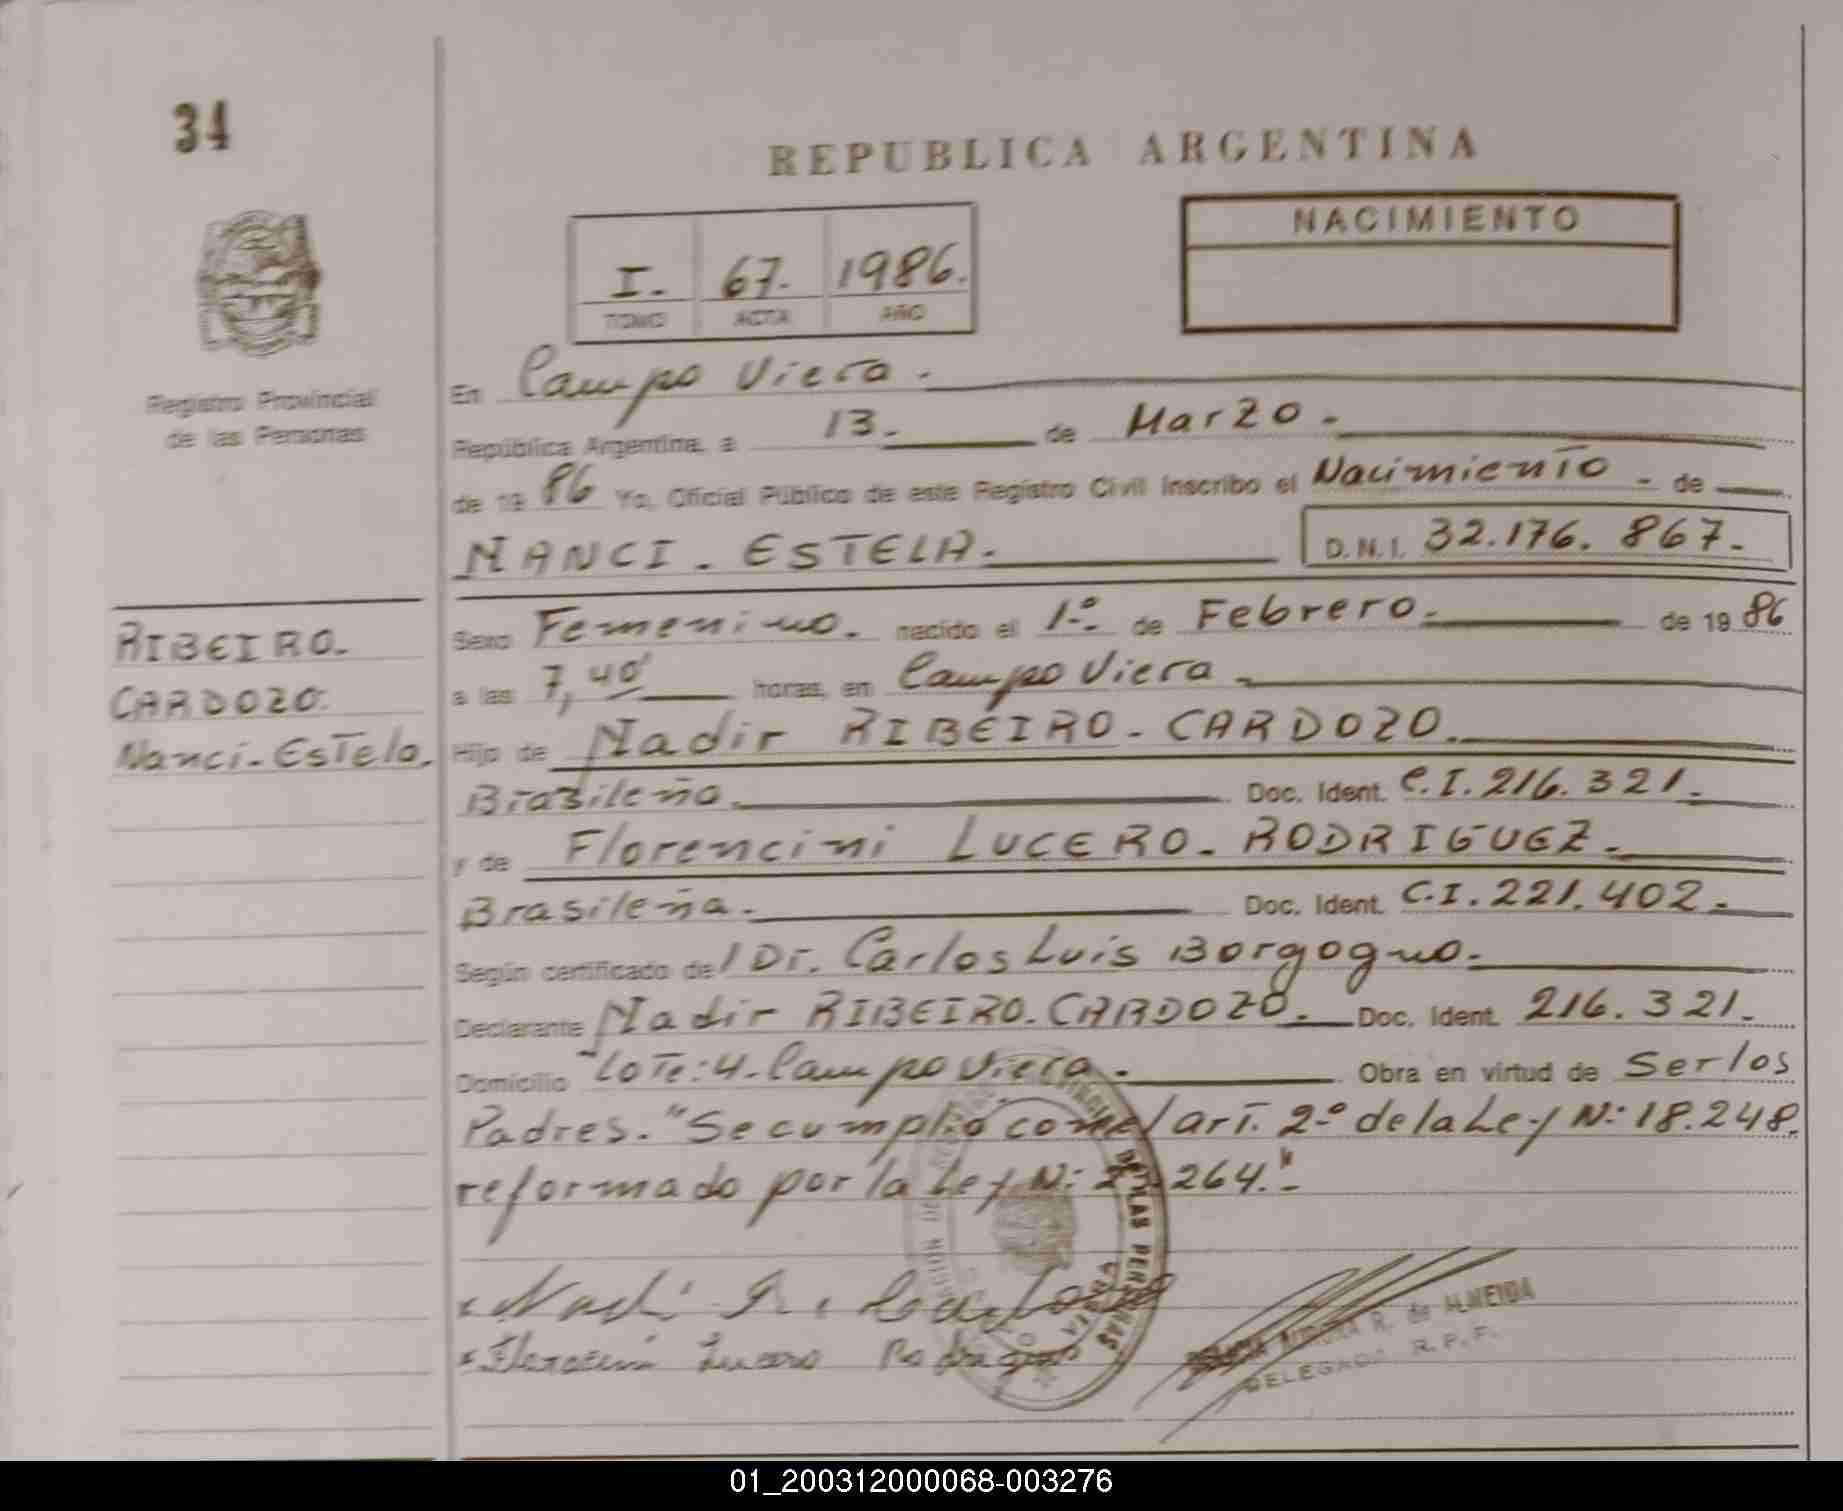 34
REPUBLICA ARGENTINA
NACIMIENTO
I. 67. 1986.
TOMO ACTA AÑO
Registro Provincial
de las Personas
En Campo Viera.
República Argentina, a 13. de Marzo.
de 19 86 Yo, Oficial Público de este Registro Civil Inscribo el Nacimiento - de
NANCI - ESTELA. D.N.I. 32.176.867.-
Sexo Femenino. nacido el 1º de Febrero. de 19 86
a las 7,40' horas, en Campo Viera
RIBEIRO.
CARDOZO.
Nanci-Estela.
Hijo de Nadir RIBEIRO - CARDOZO.
Brasileña. Doc. Ident. C.I. 216.321.
y de Florencini LUCERO - RODRIGUEZ.
Brasileña. Doc. Ident. C.I. 221.402.
Según certificado del Dr. Carlos Luis Borgogno.
Declarante Nadir RIBEIRO. CARDOZO. Doc. Ident. 216.321.
Domicilio Lote: 4. Campo Viera. Obra en virtud de Ser los
Padres. "Se cumplió con el art. 2º de la Ley Nº 18.248.
reformado por la Ley Nº 264."
Lucero Rodriguez
R. de ALMEIDA
DELEGADA R.P.P.
DE LAS PERSONAS
01_200312000068-003276